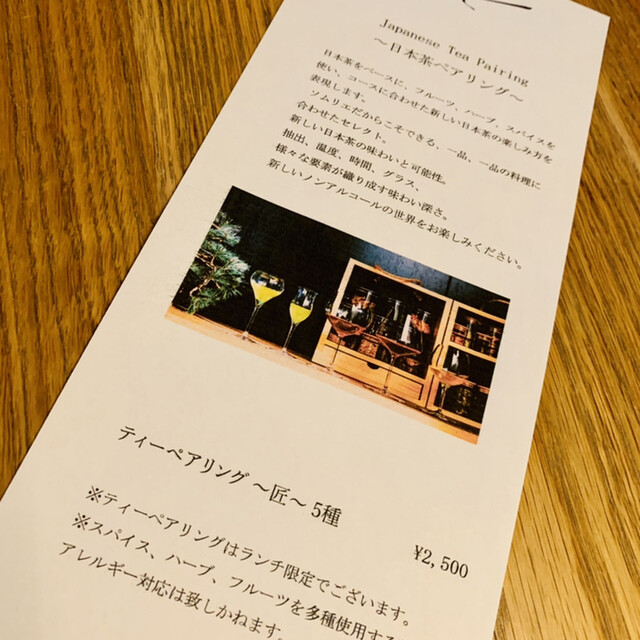 Japanese Tea Pairing
～日本茶ペアリング～
日本茶をベースに、フルーツ、ハーブ、スパイスを
使い、コースに合わせた新しい日本茶の楽しみ方を
表現します。
ソムリエだからこそできる、一品、一品の料理に
合わせたセレクト。
新しい日本茶の味わいと可能性。
抽出、温度、時間、グラス、
様々な要素が織り成す味わい深さ。
新しいノンアルコールの世界をお楽しみください。
ティーペアリング ～匠～ 5種
¥2,500
※ティーペアリングはランチ限定でございます。
※スパイス、ハーブ、フルーツを多種使用する
アレルギー対応は致しかねます。